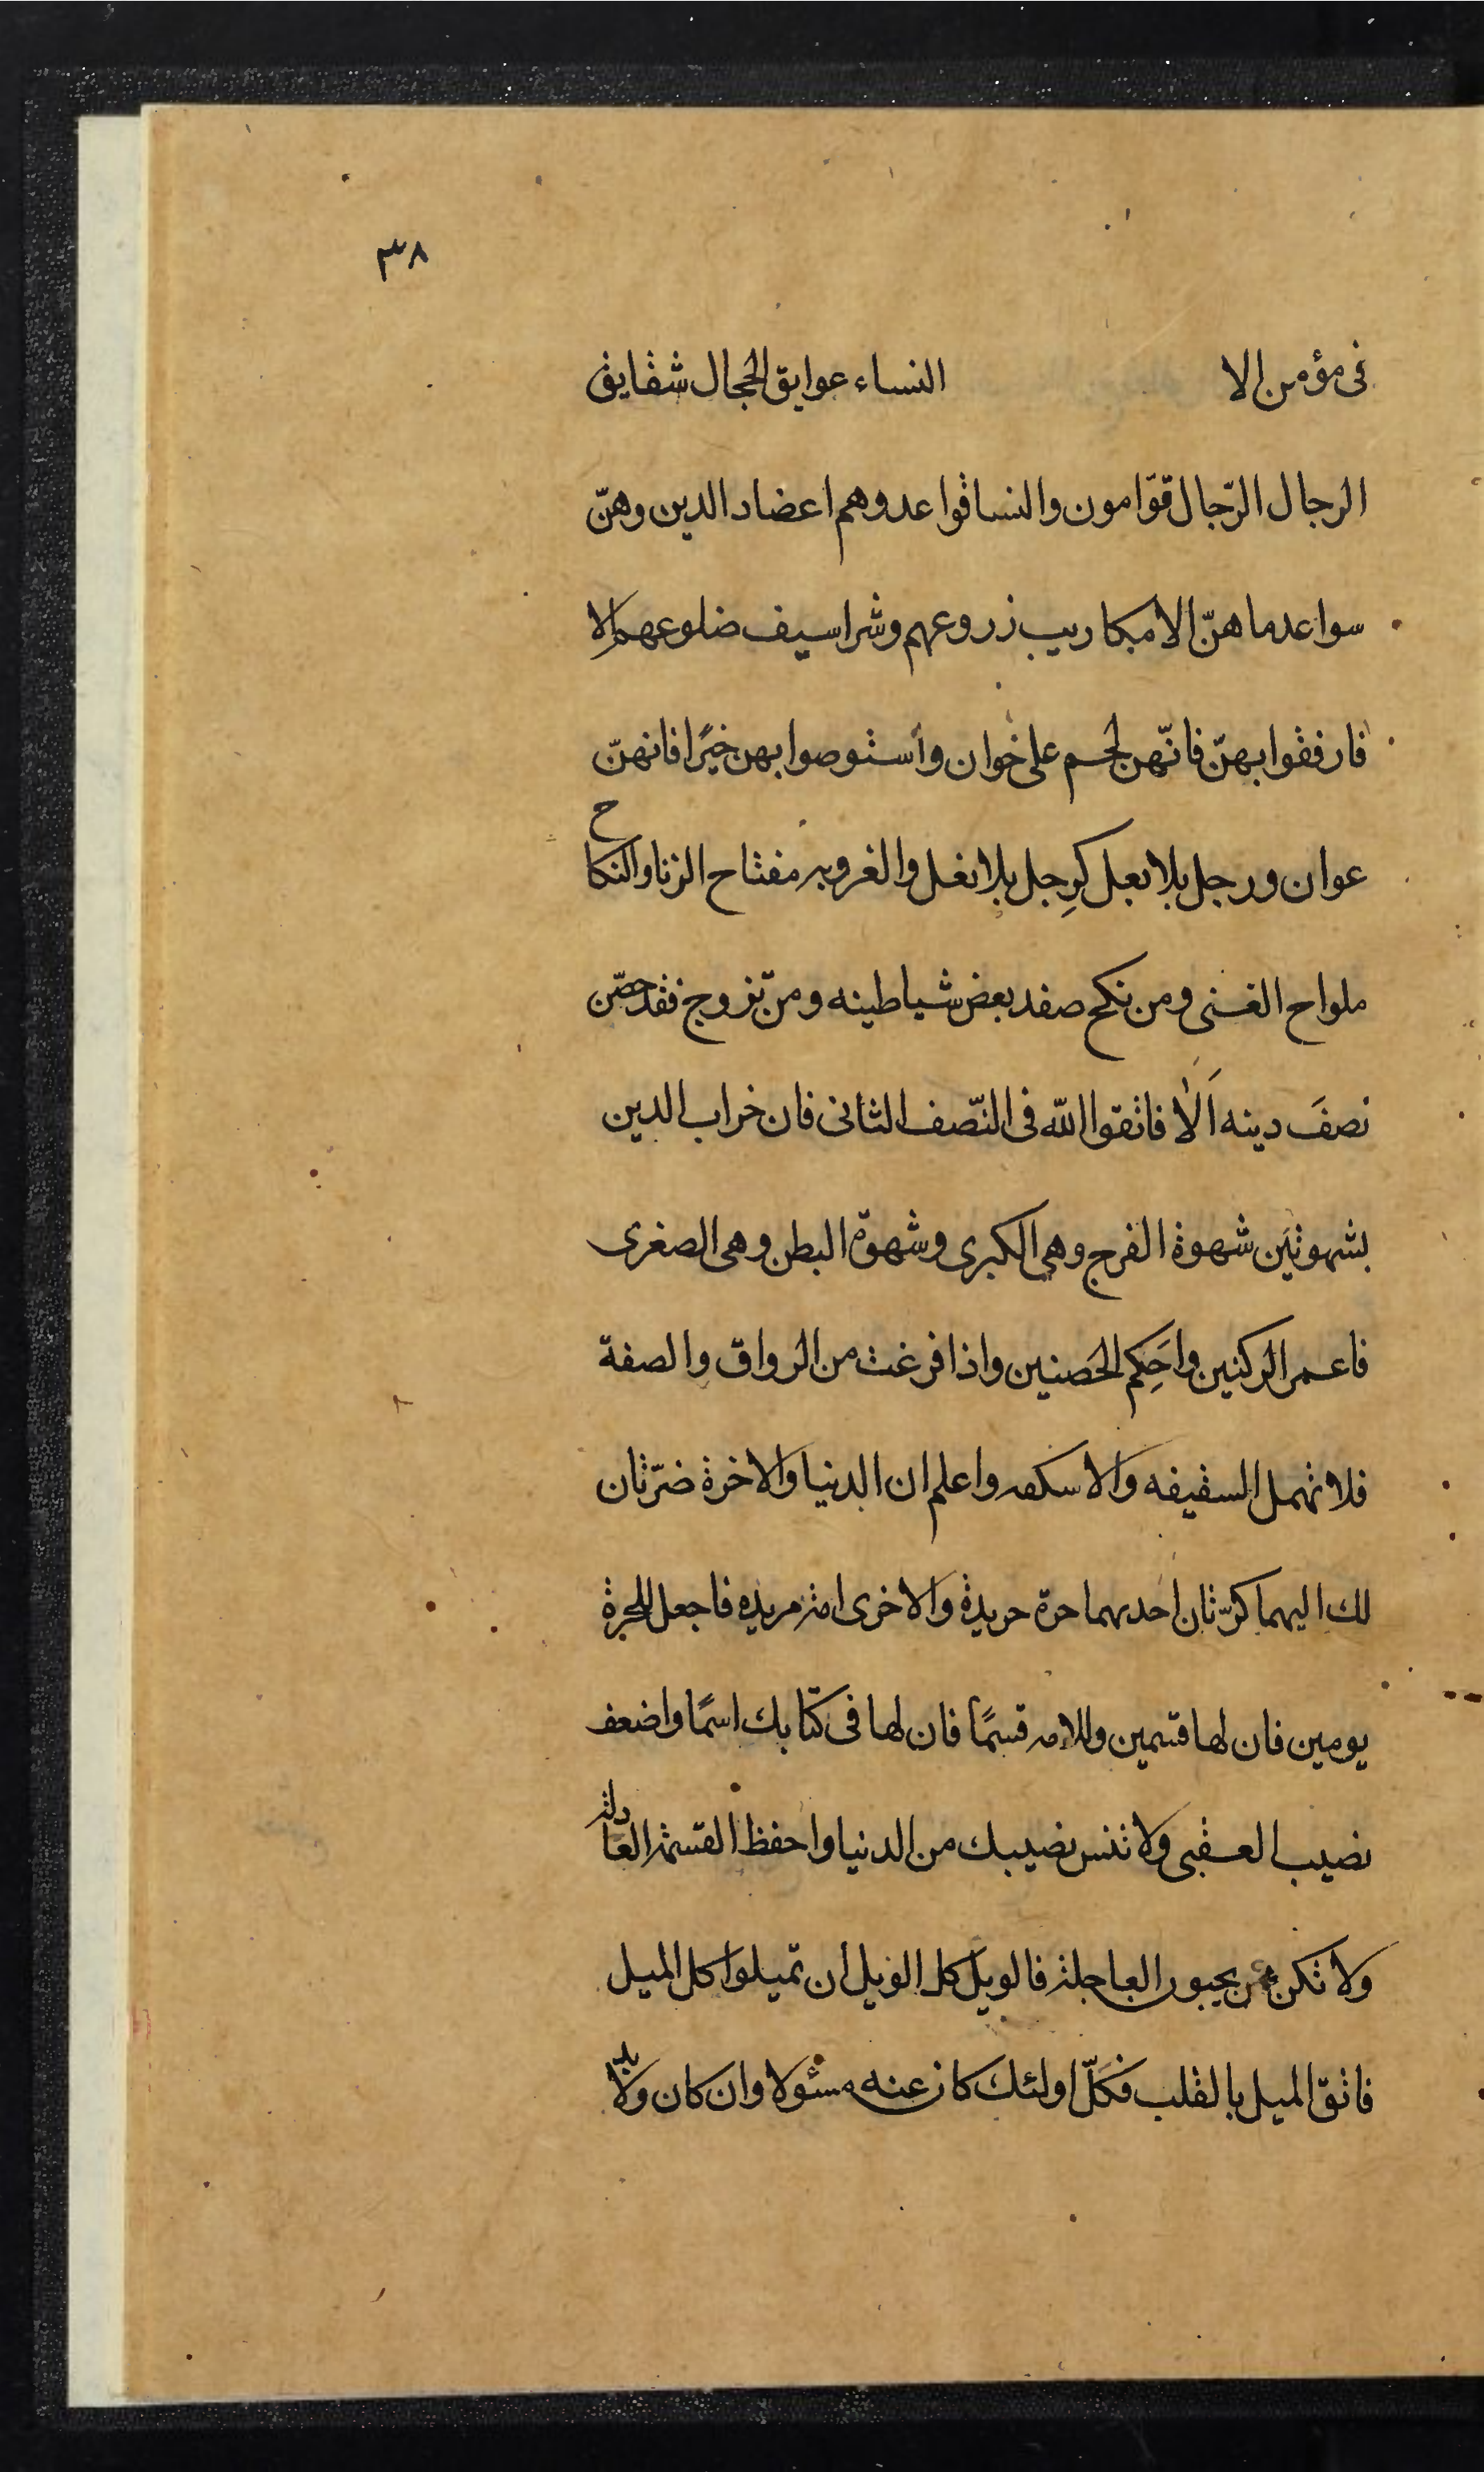 ٣٨
فى مؤمن الا النساء عوايق الحجال شقايق
الرجال الرّجال قوّامون والنسا قواعد وهم اعضاد الدين وهنّ
سواعد ما هنّ الا مكاريب زروعهم وشراسيف ضلوعهم الا
فارفقوا بهنّ فانّهن لحم على خوان وأستوصوا بهن خيرًا فانهنّ
عوان ورجل بلا بعل كرِجل بلا نعل والغروبه مفتاح الزنا والنكاح
ملواح الغنى ومن نكح صفد بعض شياطينه ومن تزوج فقد حصّن
نصفَ دينه اَلا فاتقوا الله فى النّصف الثانى فان خراب الدين
بشهوتين شهوة الفرج وهى الكبرى وشهوة البطن وهى الصغرى
فاعمر الركنين واحَكِم الحَصنين واذا فرغت من الرواق والصفة
فلا تهمل السقيفه والاسكفه واعلم ان الدنيا والاخرة ضرّتان
لك اليهما كرّتان احديهما حرة حريدة والاخرى امة مريده فاجعل للحرة
يومين فان لها قسمين وللامه قسمًا فان لها فى كتابك اسمًا واضعف
نصيب العقبى ولا تنس نصيبك من الدنيا واحفظ القسمة العادلة
ولا تكن ممن يحبون العاجلة فالويل كل الويل أن تميلوا كل الميل
فاتقّ الميل بالقلب فكلّ اولئك كان عنه مسئولا وان كان ولابد